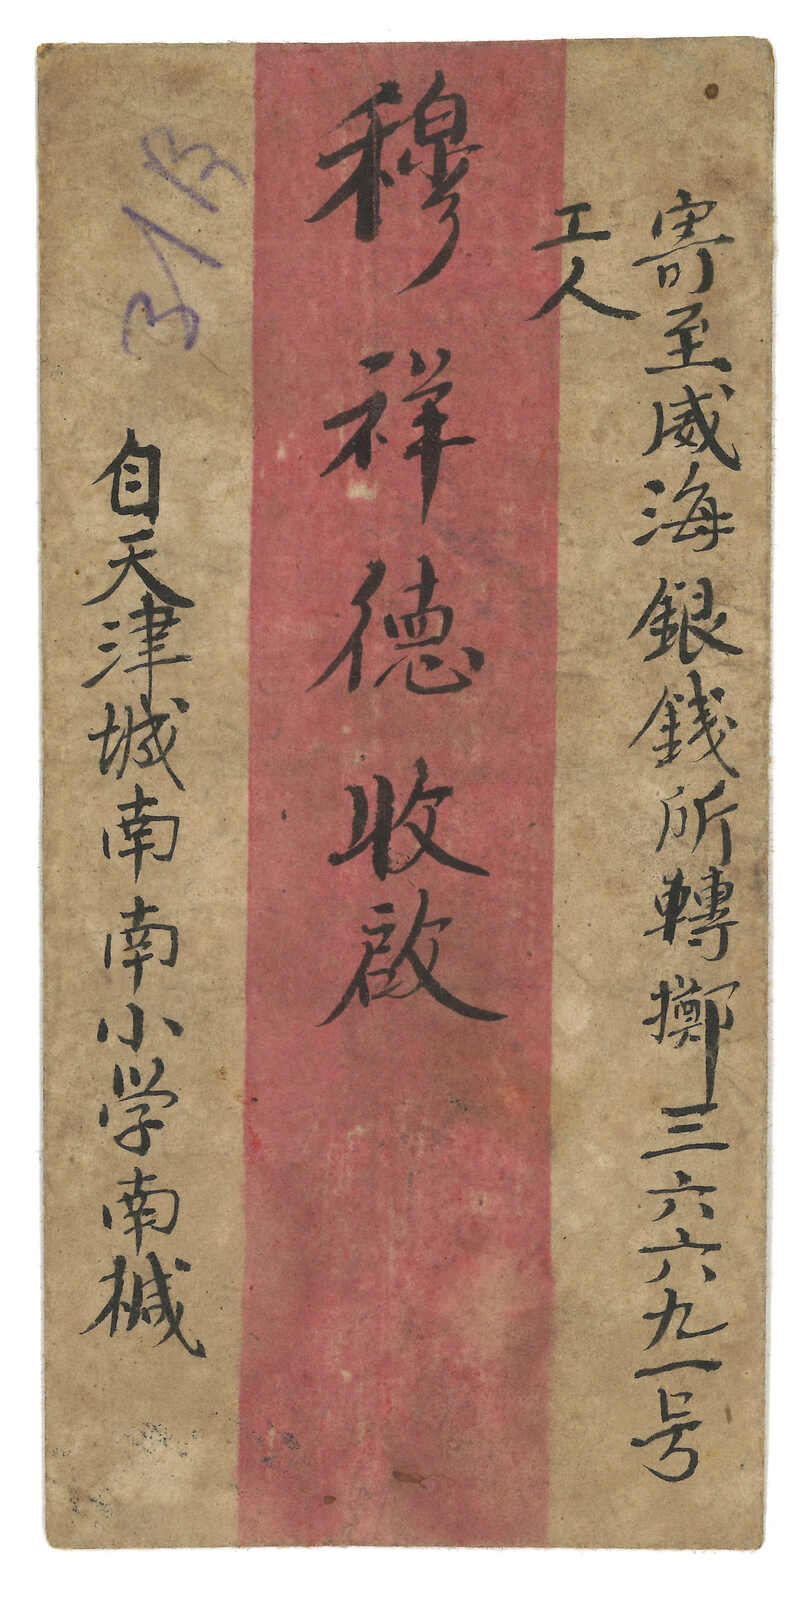 寄至威海銀錢所轉擲三六六九一号
工人
穆祥德收啟
自天津城南南小学南椷